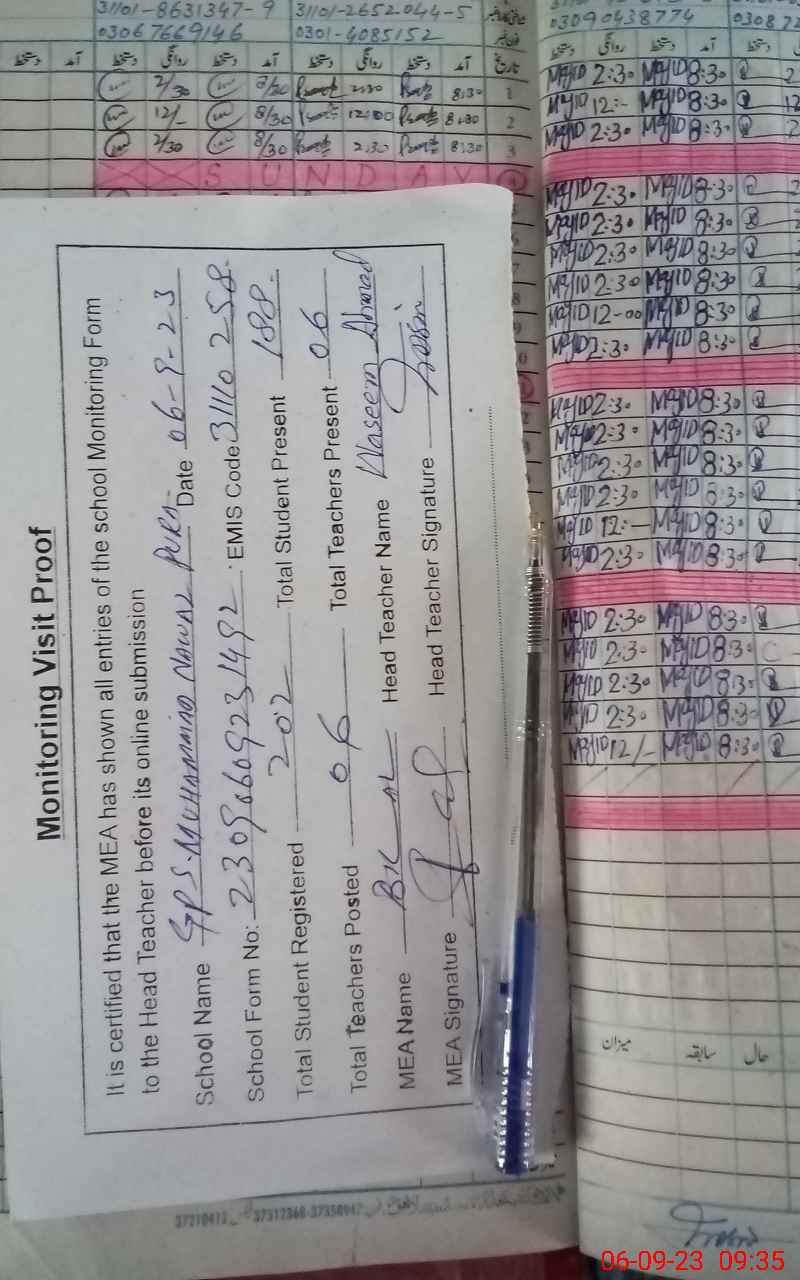 31101-8631347-9 31101-2652044-5
03067669146 0301-4085152
03090438774 03087
دستخط آمد دستخط روانگی دستخط آمد دستخط روانگی دستخط آمد تاریخ
2/30 8/30 2:30 8:30 1
12/- 8/30 12:00 8:30 2
2/30 8/30 2:30 8:30 3
SUNDAY
Monitoring Visit Proof
It is certified that the MEA has shown all entries of the school Monitoring Form
to the Head Teacher before its online submission
School Name GPS. MUHAMMAD NAWAZ PURA Date 06-9-23
School Form No: 23090609231492 EMIS Code 31110258
Total Student Registered 202 Total Student Present 188
Total Teachers Posted 06 Total Teachers Present 06
MEA Name BILAL Head Teacher Name Waseem Ahmad
MEA Signature Head Teacher Signature
Majid 2:30 Majid 8:30
Majid 12:- Majid 8:30
Majid 2:30 Majid 8:30
Majid 2:30 Majid 8:30
Majid 2:30 Majid 8:30
Majid 2:30 Majid 8:30
Majid 2:30 Majid 8:30
Majid 12-00 Majid 8:30
Majid 2:30 Majid 8:30
Majid 2:30 Majid 8:30
Majid 2:30 Majid 8:30
Majid 2:30 Majid 8:30
Majid 2:30 Majid 8:30
Majid 12:- Majid 8:30
Majid 2:30 Majid 8:30
Majid 2:30 Majid 8:30
Majid 2:30 Majid 8:30
Majid 2:30 Majid 8:30
Majid 2:30 Majid 8:30
Majid 12/- Majid 8:30
میزان سابقہ حال
37210412 37312360-37350947
06-09-23 09:35